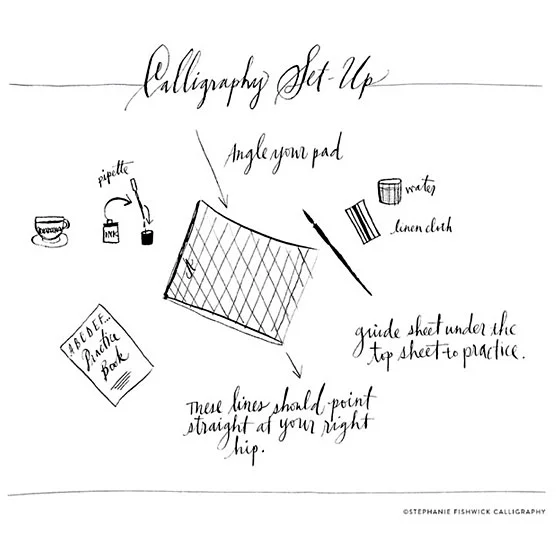 Calligraphy Set-Up
Angle your pad
pipette
water
INK
linen cloth
guide sheet under the
top sheet to practice.
ABCDEF...
Practice
Book
These lines should point
straight at your right
hip.
©STEPHANIE FISHWICK CALLIGRAPHY